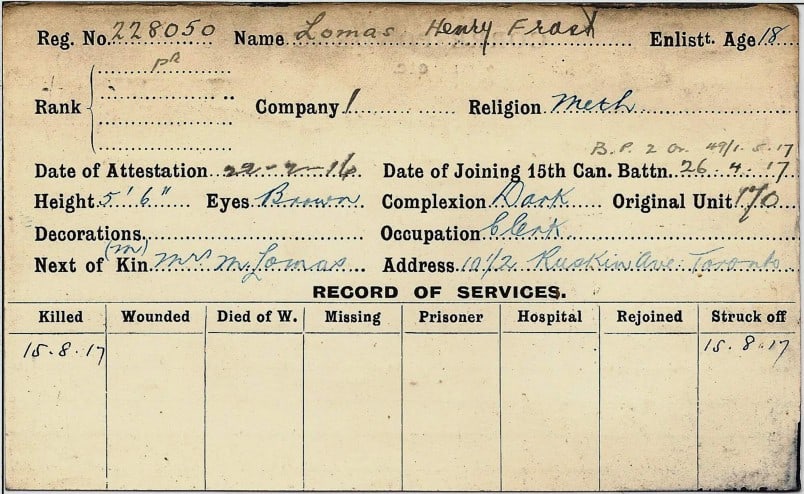 Reg. No. 228050 Name Lomas Henry Frost Enlistt. Age 18
Pte
Rank Company 1 Religion Meth
B.P. 2 Or. 49/1-5-17
Date of Attestation 22-2-16 Date of Joining 15th Can. Battn. 26.4.17
Height 5' 6" Eyes Brown Complexion Dark Original Unit 170
Decorations Occupation Clerk
(m)
Next of Kin Mrs M. Lomas Address 10 1/2 Ruskin Ave. Toronto
RECORD OF SERVICES.
Killed Wounded Died of W. Missing Prisoner Hospital Rejoined Struck off
15.8.17 15.8.17